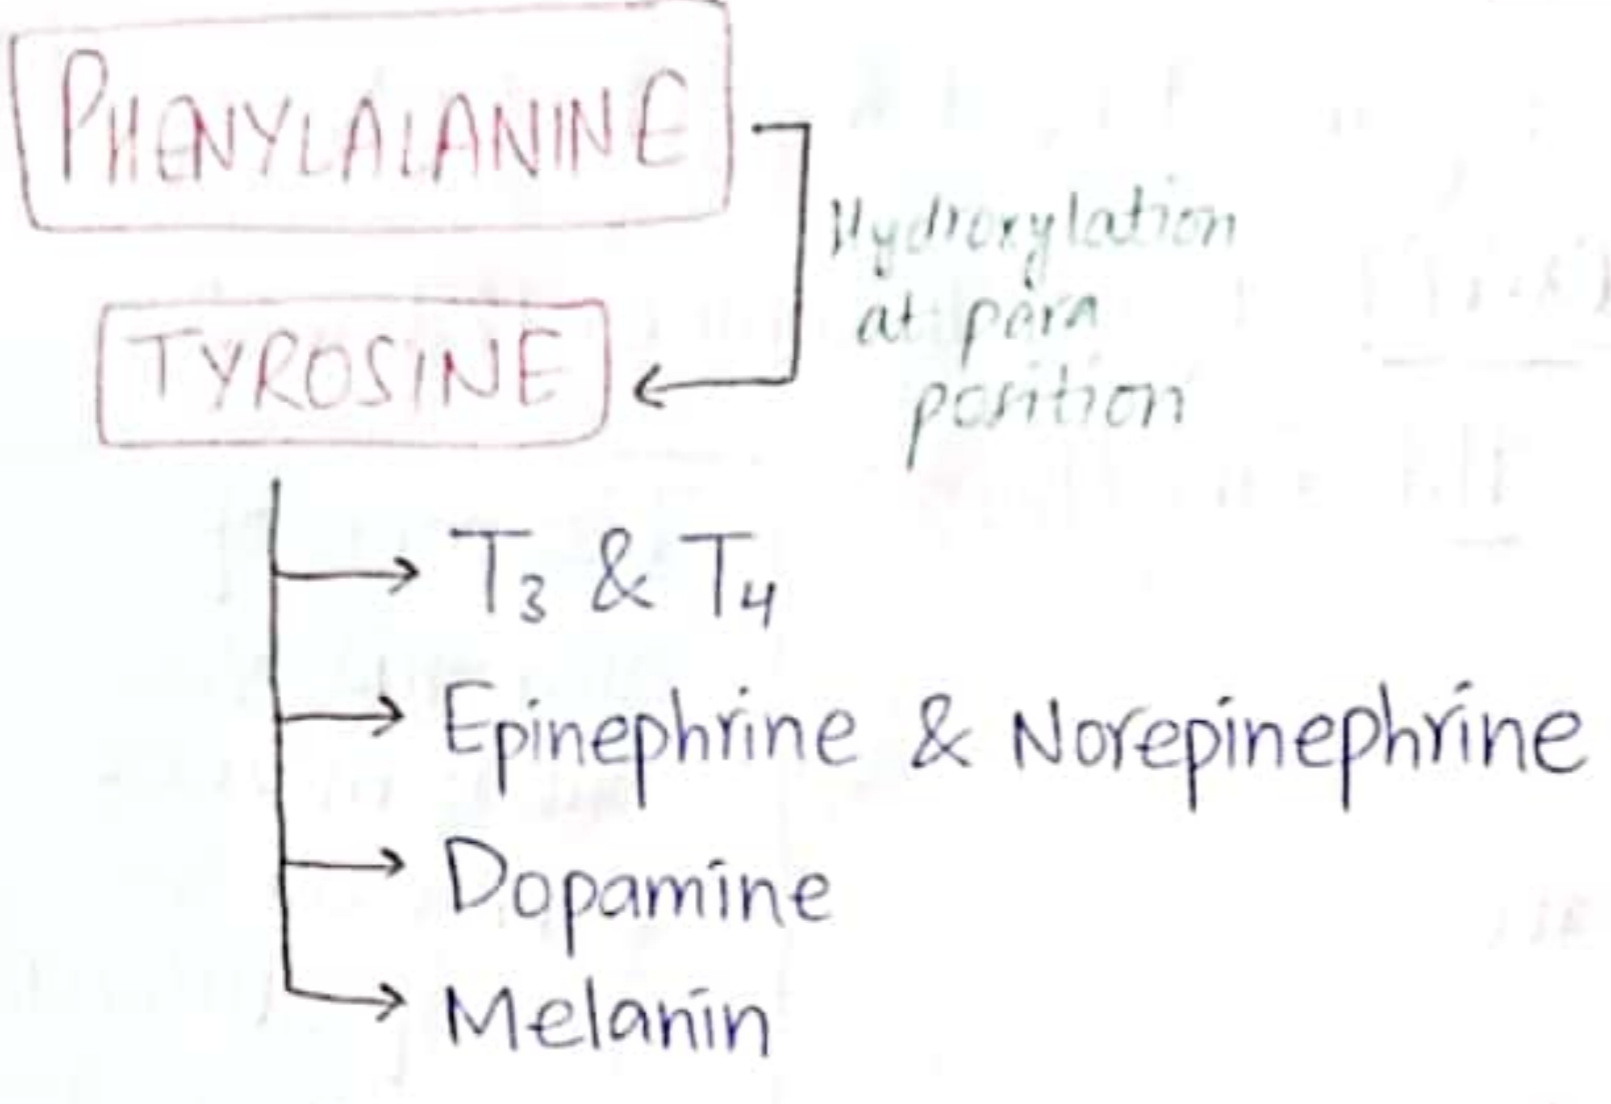 PHENYLALANINE
Hydroxylation
at para
position
TYROSINE
T3 & T4
Epinephrine & Norepinephrine
Dopamine
Melanin